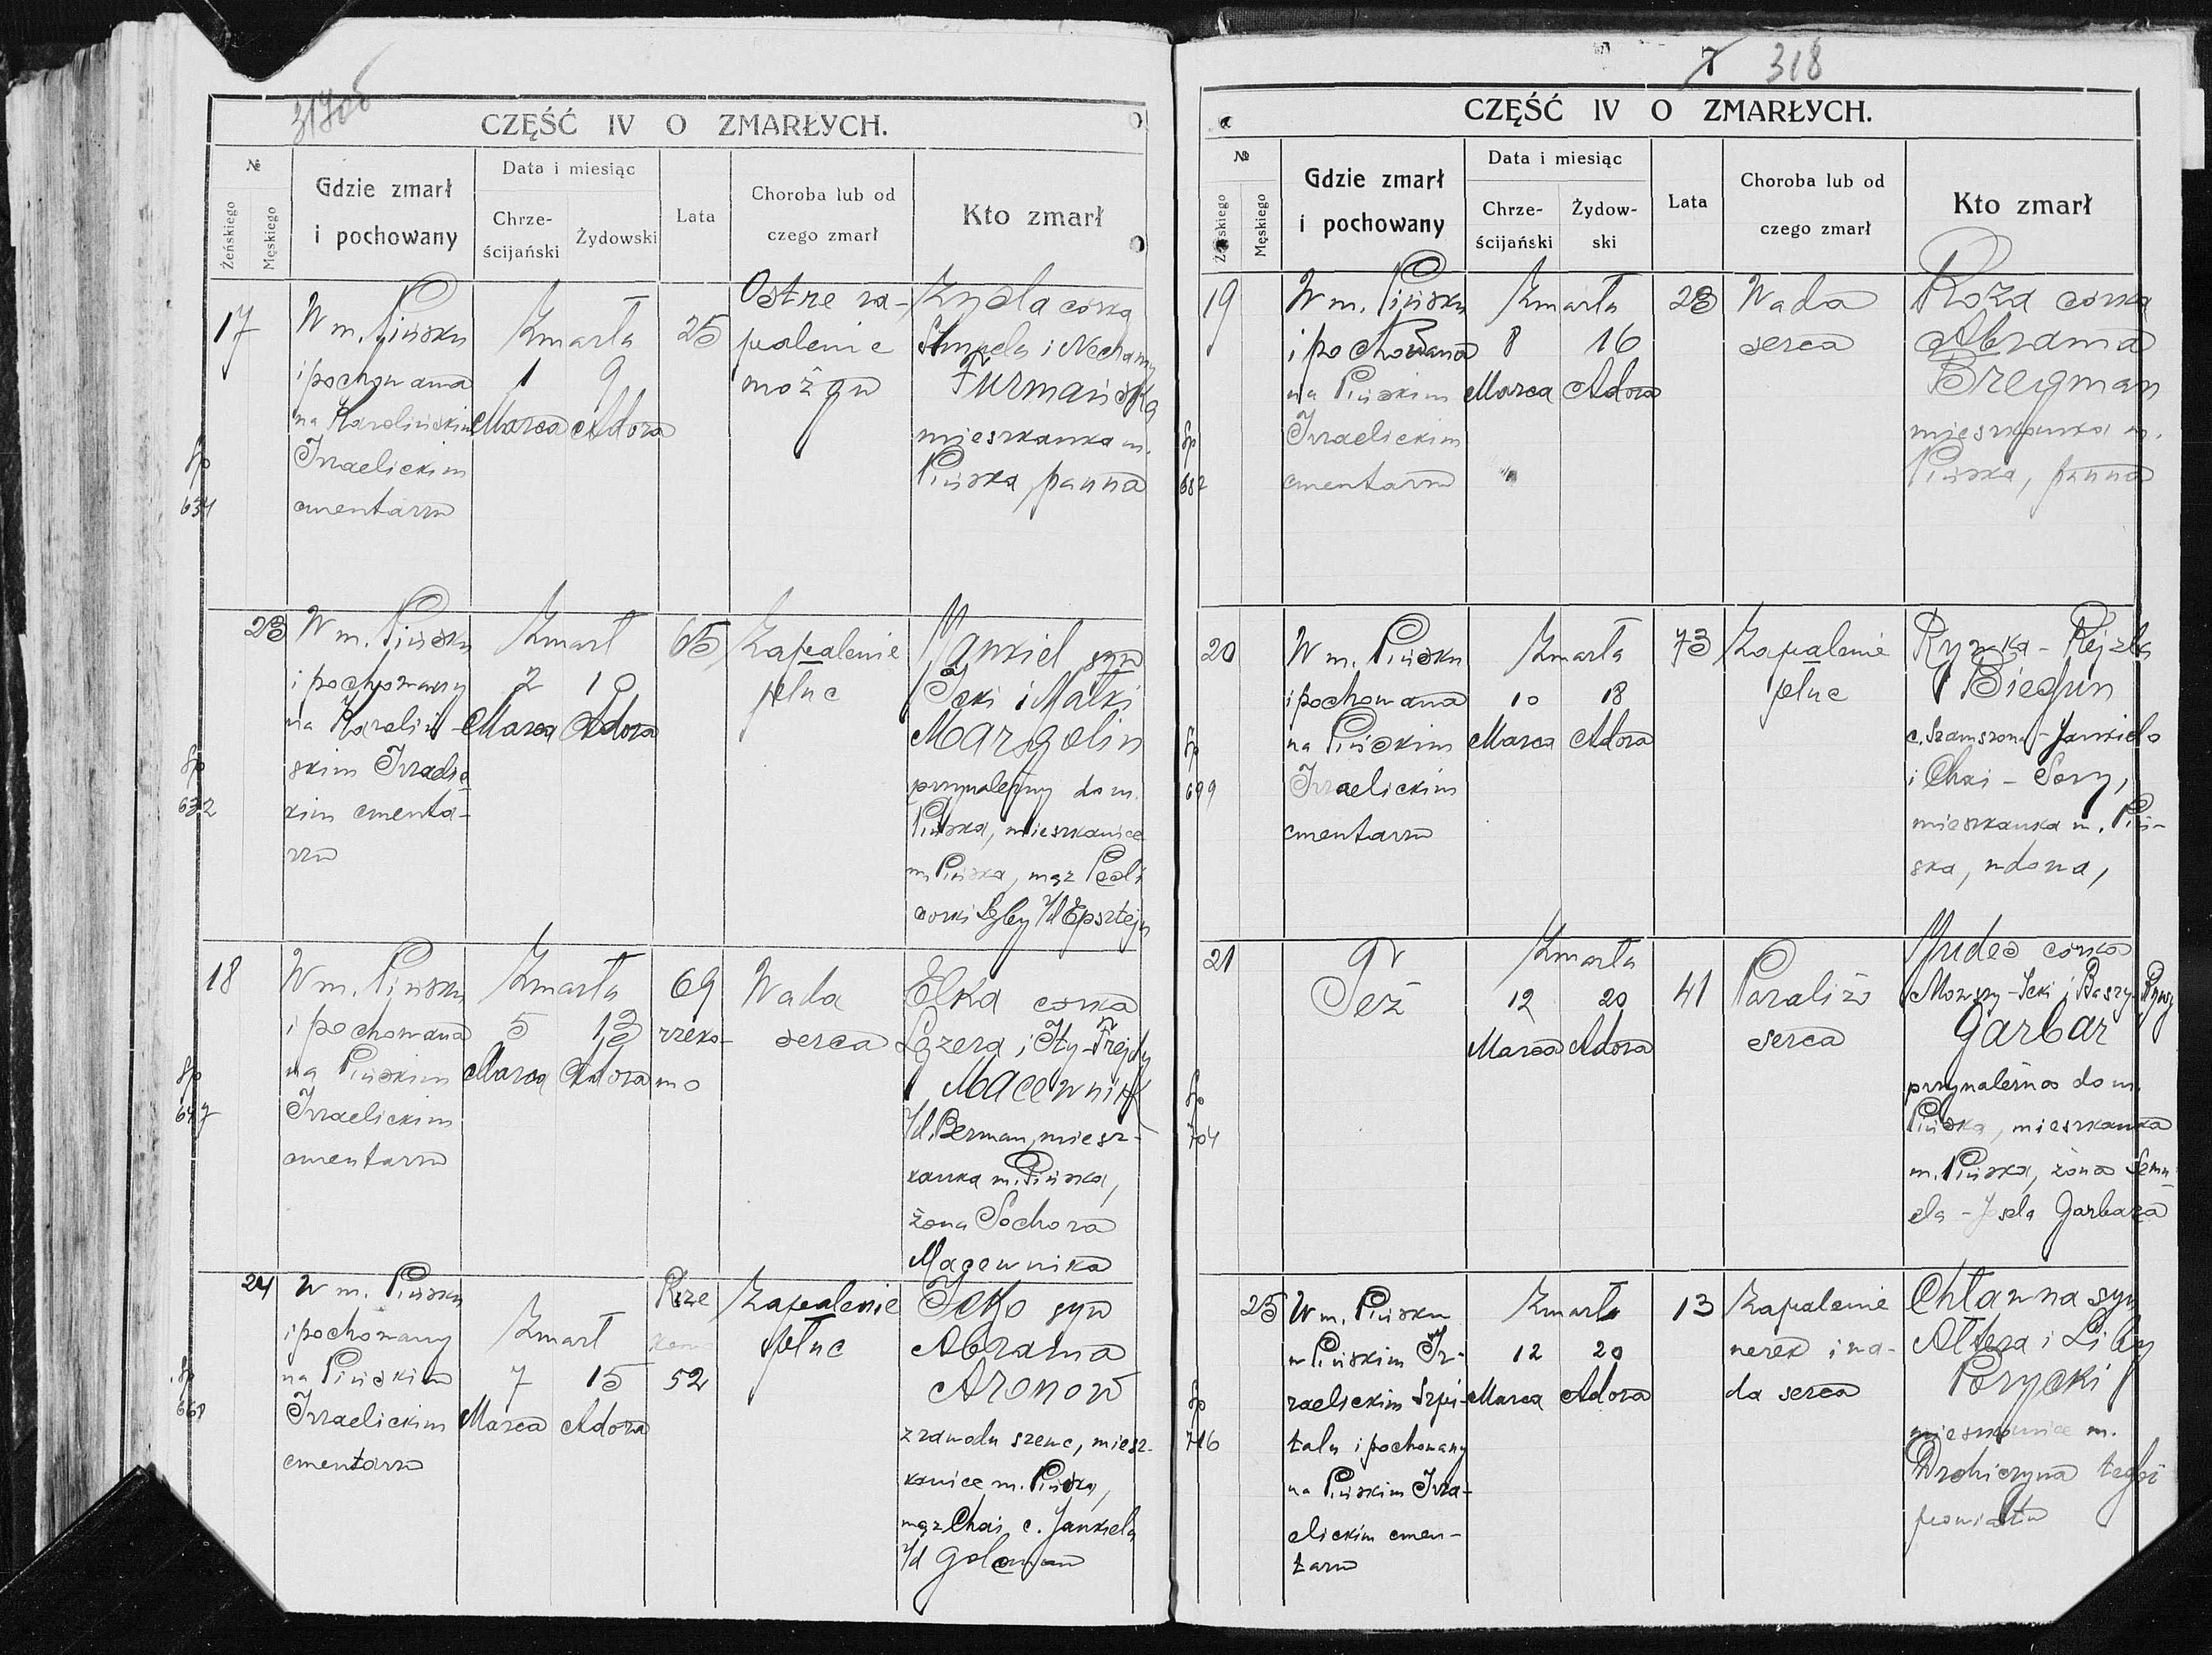 317об
CZĘŚĆ IV O ZMARŁYCH.
№
Żeńskiego
Męskiego
Gdzie zmarł
i pochowany
Data i miesiąc
Chrze-
ścijański
Żydowski
Lata
Choroba lub od
czego zmarł
Kto zmarł
17
W m. Pińsku
i pochowana
na Karolińskim
Izraelickim
cmentarzu
Zmarła
1 9
Marca Adora
25
Ostre za-
palenie
mózgu
Zyzla córka
i Nechamy
Furmańska
mieszkanka m.
Pińska, panna
Sp
634
23
W m. Pińsku
i pochowany
na Karoliń-
skim Izraelic
kim cmenta-
rzu
Zmarł
2 10
Marca Adora
65
Zapalenie
płuc
Jankiel syn
Icki i Małki
Margolin
przynależny do m.
Pińska, mieszkaniec
m. Pińska, mąż Pesli
córki Lejby z/d Epsztejn
Sp
632
18
W m. Pińsku
i pochowana
na Pińskim
Izraelickim
cmentarzu
Zmarła
5 13
Marca Adora
69
rzeko-
mo
Wada
serca
Elka córka
Łązera i Ity-Frejdy
Macewnik
z/d. Berman, miesz-
kanka m. Pińska,
żona Sochora
Macewnika
Sp
647
24
W m. Pińsku
i pochowany
na Pińskim
Izraelickim
cmentarzu
Zmarł
7 15
Marca Adora
Rze
komo
52
Zapalenie
płuc
Icko syn
Abrama
Aronow
z zawodu szewc, miesz-
kaniec m. Pińska,
mąż Chai c. Jankiela
z/d Golcman
Sp
661
7 318
CZĘŚĆ IV O ZMARŁYCH.
№
Żeńskiego
Męskiego
Gdzie zmarł
i pochowany
Data i miesiąc
Chrze-
ścijański
Żydow-
ski
Lata
Choroba lub od
czego zmarł
Kto zmarł
19
W m. Pińsku
i pochowana
na Pińskim
Izraelickim
cmentarzu
Zmarła
8 16
Marca Adora
23
Wada
serca
Róża córka
Abrama
Bregman
mieszkanka m.
Pińska, panna
Sp
682
20
W m. Pińsku
i pochowana
na Pińskim
Izraelickim
cmentarzu
Zmarła
10 18
Marca Adora
73
Zapalenie
płuc
Rywka-Rejzla
Biegun
c. Szamszona-Jankiela
i Chai-Sory,
mieszkanka m. Piń-
ska, wdowa,
Sp
699
21
Też
Zmarła
12 20
Marca Adora
41
Paraliż
serca
Judes córka
Mowszy-Icki i Baszy-Rywy
Garbar
przynależna do m.
Pińska, mieszkanka
m. Pińska, żona Semu
ela-Josela Garbara
Sp
704
25
W m. Pińsku
w Pińskim Iz-
raelickim Szpi-
talu i pochowany
na Pińskim Izra-
elickim cmen-
tarzu
Zmarła
12 20
Marca Adora
13
Zapalenie
nerek i wa-
da serca
Chlawna syn
Altera i Liby
Porycki
mieszkaniec m.
Drohiczyna tegoż
powiatu
Sp
716